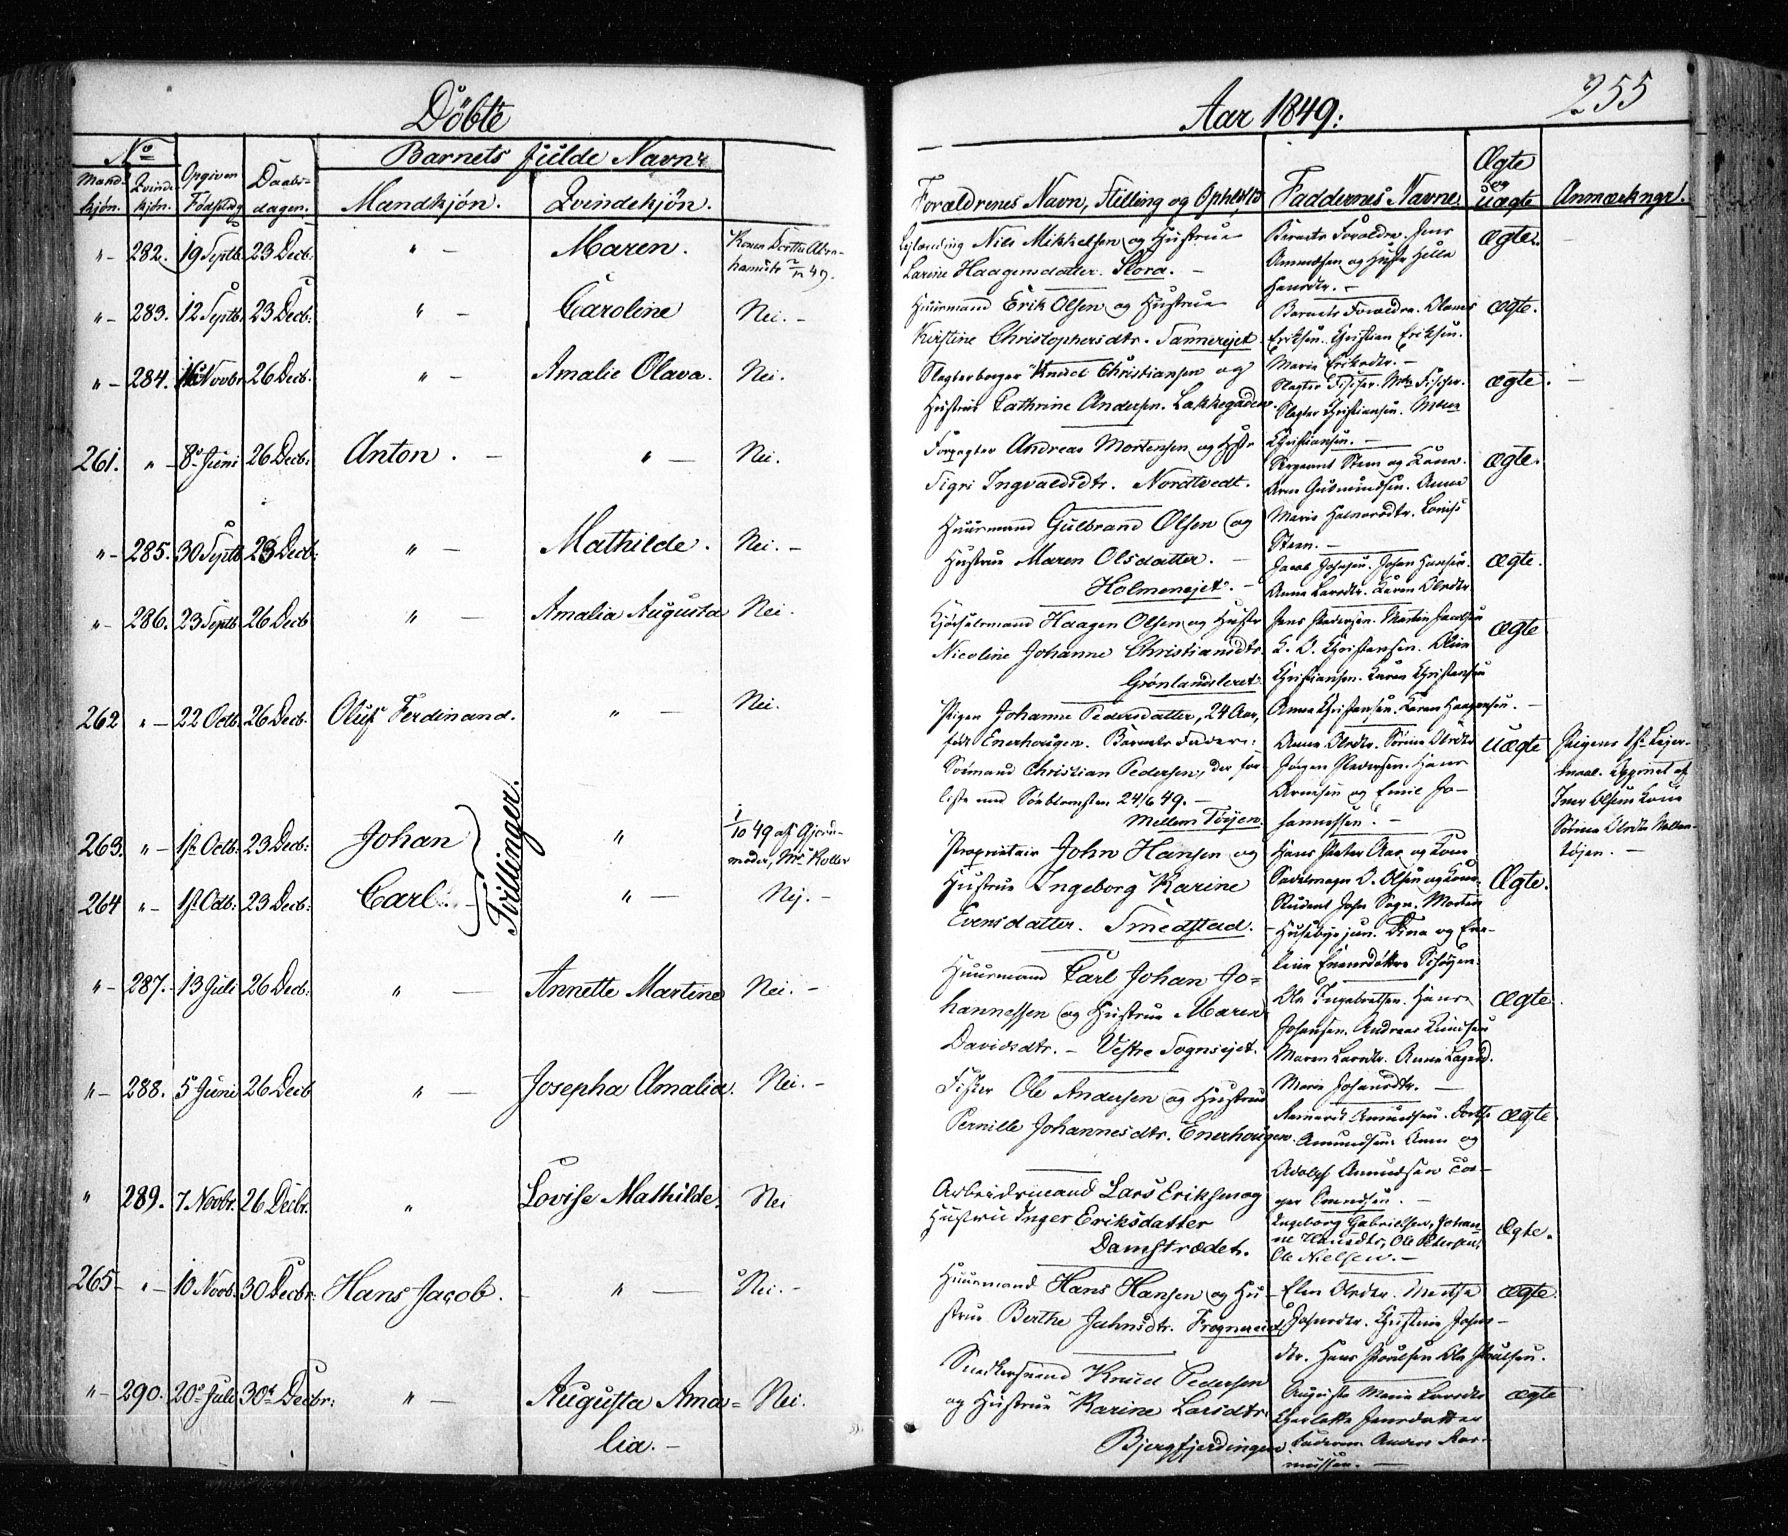 Döbte
Aar 1849:
255
No
Mandkjön.
Qvindekjön.
Opgiven Födselsdag
Daabsdagen.
Barnets fulde Navn
Mandkjön.
Qvindekjön.
Forældrenes Navn, Stilling og Ophold
Faddernes Navne
Ægte og uægte
Anmærkngr.
"- 282. 19 Septb. 23 Decb: " - Maren.
Leilænding Nils Mikkelsen og Hustrue
Larine Haagensdatter. Slora. -
Barnets Forældre. Jens
Amundsen og Hustr Helle
Hansdtr. -
ægte.
"- 283. 12 Septb. 23 Decb: " - Caroline Nei. -
Huurmand Erik Olsen og Hustrue
Kirstine Christophersdtr. Sannerejet.
Barnets Forældre.
Eriksen. Christian Eriksen.
Maria Eriksdtr. -
ægte.
"- 284. 16 Novbr 26 Decb. " - Amalie Olava. Nei.
Slagterborger Knud Christiansen og
Hustrue Cathrine Andersen. Lakkegaden
Slagter Fischer. Mda Fischer.
Slagter Christiansen.
Christiansen. -
ægte. -
261. " - 8de Juni 26 Decb: Anton. - " - Nei.
Forpagter Andreas Mortensen og Hstr
Sigri Ingvaldsdtr. Nordtvedt.
Sergeant Steen og Kone.
Arne Gudmundsen. Anne
Marie Halvorsdtr. Lovise
Steen. -
ægte.
"- 285. 30 Septb. 23 Decb: " - Mathilde. Nei. -
Huurmand Gulbrand Olsen og
Hustrue Maren Olsdatter. -
Holmenejet. -
Jacob Johnsen. Johan Hansen.
Anne Larsdtr. Karen Olsdtr
ægte.
"- 286. 23 Septb. 26 Decb " - Amalia Augusta Nei.
Haagen Olsen og Hustr
Nicoline Johanne Christiansdtr.
Grønlandsleret.
Jens Pedersen. Martin Jacobsen
K. O. Christensen. Oline
Christiansen. Karen Christensen
ægte
262 " - 22 Octb. 26 Decb. Oluf Ferdinand. " - Nei.
Pigen Johanne Pedersdatter, 24 Aar,
født Enerhougen. Barnets Fader:
Sømand Christian Pedersen, der for-
liste med 24/6 49. -
Mellem Töyen.
Anne Christensen. Karen Haagensen. -
Anne Olsdtr. Sörine Olsdtr
Jörgen Pedersen. Hans
Arnesen og Emil Jo-
hannessen. -
uægte
Pigens 1ste Leier-
maal. Opgivet af
Iver Olsens Kone
Sörine Olsdtr Mellem-
töjen. -
263. " - 1ste Octb. 23 Decb: Johan "
1/10 49 af Gjor-
moder, Me Koller
264 " - 1ste Octb: 23 Decb: Carl. - " - Nej. -
Tvillinger.
Proprietair John Hansen og
Hustrue Ingeborg Karine
Evensdatter. Smedstad. -
Hans Peter Aas og Kone
Sadelmager O. Olsen og Kone.
Student John Sogn. Morten
Husebye jun. Dina og Eve-
line Evensdöttre Schöyen.
Ægte.
"- 287. 13 Juli 26 Decb: " - Annette Martine Nei. -
Huurmand Carl Johan Jo-
hannessen og Hustrue Maren
Davidsdtr. - Vestre Sognsejet.
Ole Ingebretsen. Hans
Johansen. Andreas Knudsen
Maren Larsdtr. Anne
Marie Johansdtr. -
ægte.
"- 288. 5 Juni 26 Decb " - Josepha Amalia. Nei. -
Fisker Ole Andersen og Hustrue
Pernille Johannesdtr. Enerhougen.
Amundsen. Dorthe
Amundsen. Anne og
Adolph Amundsen
ægte
" 289. 7 Novbr. 26 Decbr. " Lovise Mathilde. Nei
Arbeidsmand Lars Eriksen og
Hustrue Inger Eriksdatter
Damstrædet.
Ingeborg Gabrielsen, Johan-
ne Hansdtr, Ole Petersen,
Ole Nielsen. -
Ægte.
265 - " - 10 Novb. 30 Decbr: Hans Jacob. - " - Nei. -
Huurmand Hans Hansen og Hu-
strue Berthe Juhnsdtr. Frognereiet.
Elen Olsdtr. Marthe
Johnsdtr. Christine Johns-
dtr. Hans Poulsen Ole Poulsen.
ægte.
"- 290. 20de Juli 30te Decbr: " - Augusta Ama-
lia. - Nei.
Snedkersvend Knud Pedersen
og Hustrue Karine Larsdtr.
Bjergfjerdingen.
Auguste Marie Larsdtr
Charlotte Jensdatter
Faderen Anders Ras-
mussen. -
ægte